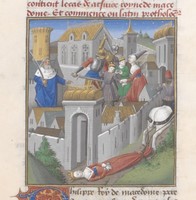 contient le cas de arsinoe royne de mace
done. Et commence ou latin prothole
halippe roy de macedoine pere